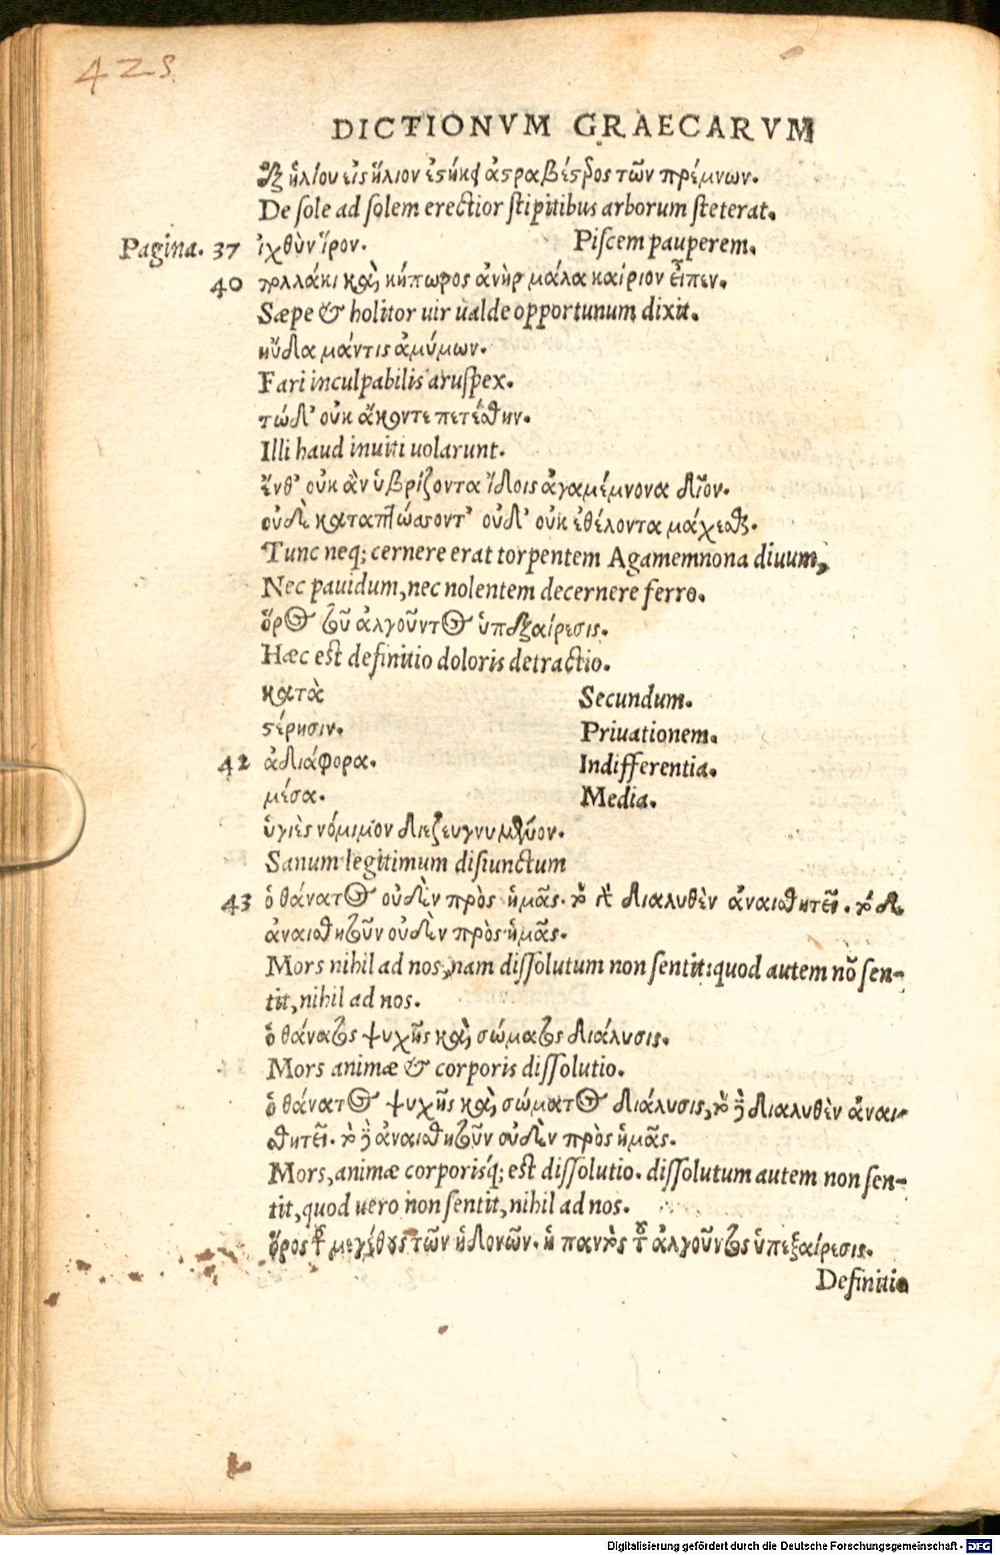 425
DICTIONVM GRAECARVM
ἐξ ἡλίου εἰς ἥλιον ἑστήκει ἀστραβέστερος τῶν πρέμνων.
De sole ad solem erectior stipitibus arborum steterat.
Pagina. 37 ἰχθὺν ἵρον. Piscem pauperem.
40 πολλάκι καὶ κήπωρος ἀνὴρ μάλα καίριον εἶπεν.
Sæpe & holitor uir ualde opportunum dixit.
ηὔδα μάντις ἀμύμων.
Fari inculpabilis aruspex.
τώδ' οὐκ ἄκοντε πετέσθην.
Illi haud inuiti uolarunt.
ἔνθ' οὐκ ἂν ὑβρίζοντα ἴδοις ἀγαμέμνονα δῖον.
οὐδὲ καταπτώσσοντ' οὐδ' οὐκ ἐθέλοντα μάχεσθαι.
Tunc neq; cernere erat torpentem Agamemnona diuum,
Nec pauidum, nec nolentem decernere ferro.
ὅρος τοῦ ἀλγοῦντος ὑπεξαίρεσις.
Hæc est definitio doloris detractio.
κατὰ Secundum.
στέρησιν. Priuationem.
42 ἀδιάφορα. Indifferentia.
μέσα. Media.
ὑγιὲς νόμιμον διεζευγνυμένον.
Sanum legitimum disiunctum
43 ὁ θάνατος οὐδὲν πρὸς ἡμᾶς. τὸ γὰρ διαλυθὲν ἀναισθητεῖ. τὸ δὲ
ἀναισθητοῦν οὐδὲν πρὸς ἡμᾶς.
Mors nihil ad nos, nam dissolutum non sentit: quod autem nō sen-
tit, nihil ad nos.
ὁ θάνατος ψυχῆς καὶ σώματος διάλυσις.
Mors animæ & corporis dissolutio.
ὁ θάνατος ψυχῆς καὶ σώματος διάλυσις, τὸ δὲ διαλυθὲν ἀναι-
σθητεῖ. τὸ δὲ ἀναισθητοῦν οὐδὲν πρὸς ἡμᾶς.
Mors, animæ corporisq́; est dissolutio. dissolutum autem non sen-
tit, quod uero non sentit, nihil ad nos.
ὅρος τοῦ μεγέθους τῶν ἡδονῶν. ἡ παντὸς τοῦ ἀλγοῦντος ὑπεξαίρεσις.
Definitio
Digitalisierung gefördert durch die Deutsche Forschungsgemeinschaft - DFG